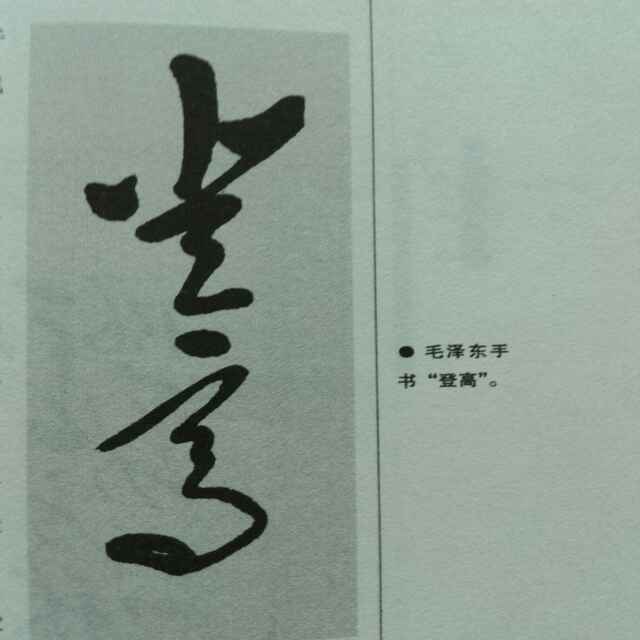 登高
● 毛泽东手
书“登高”。